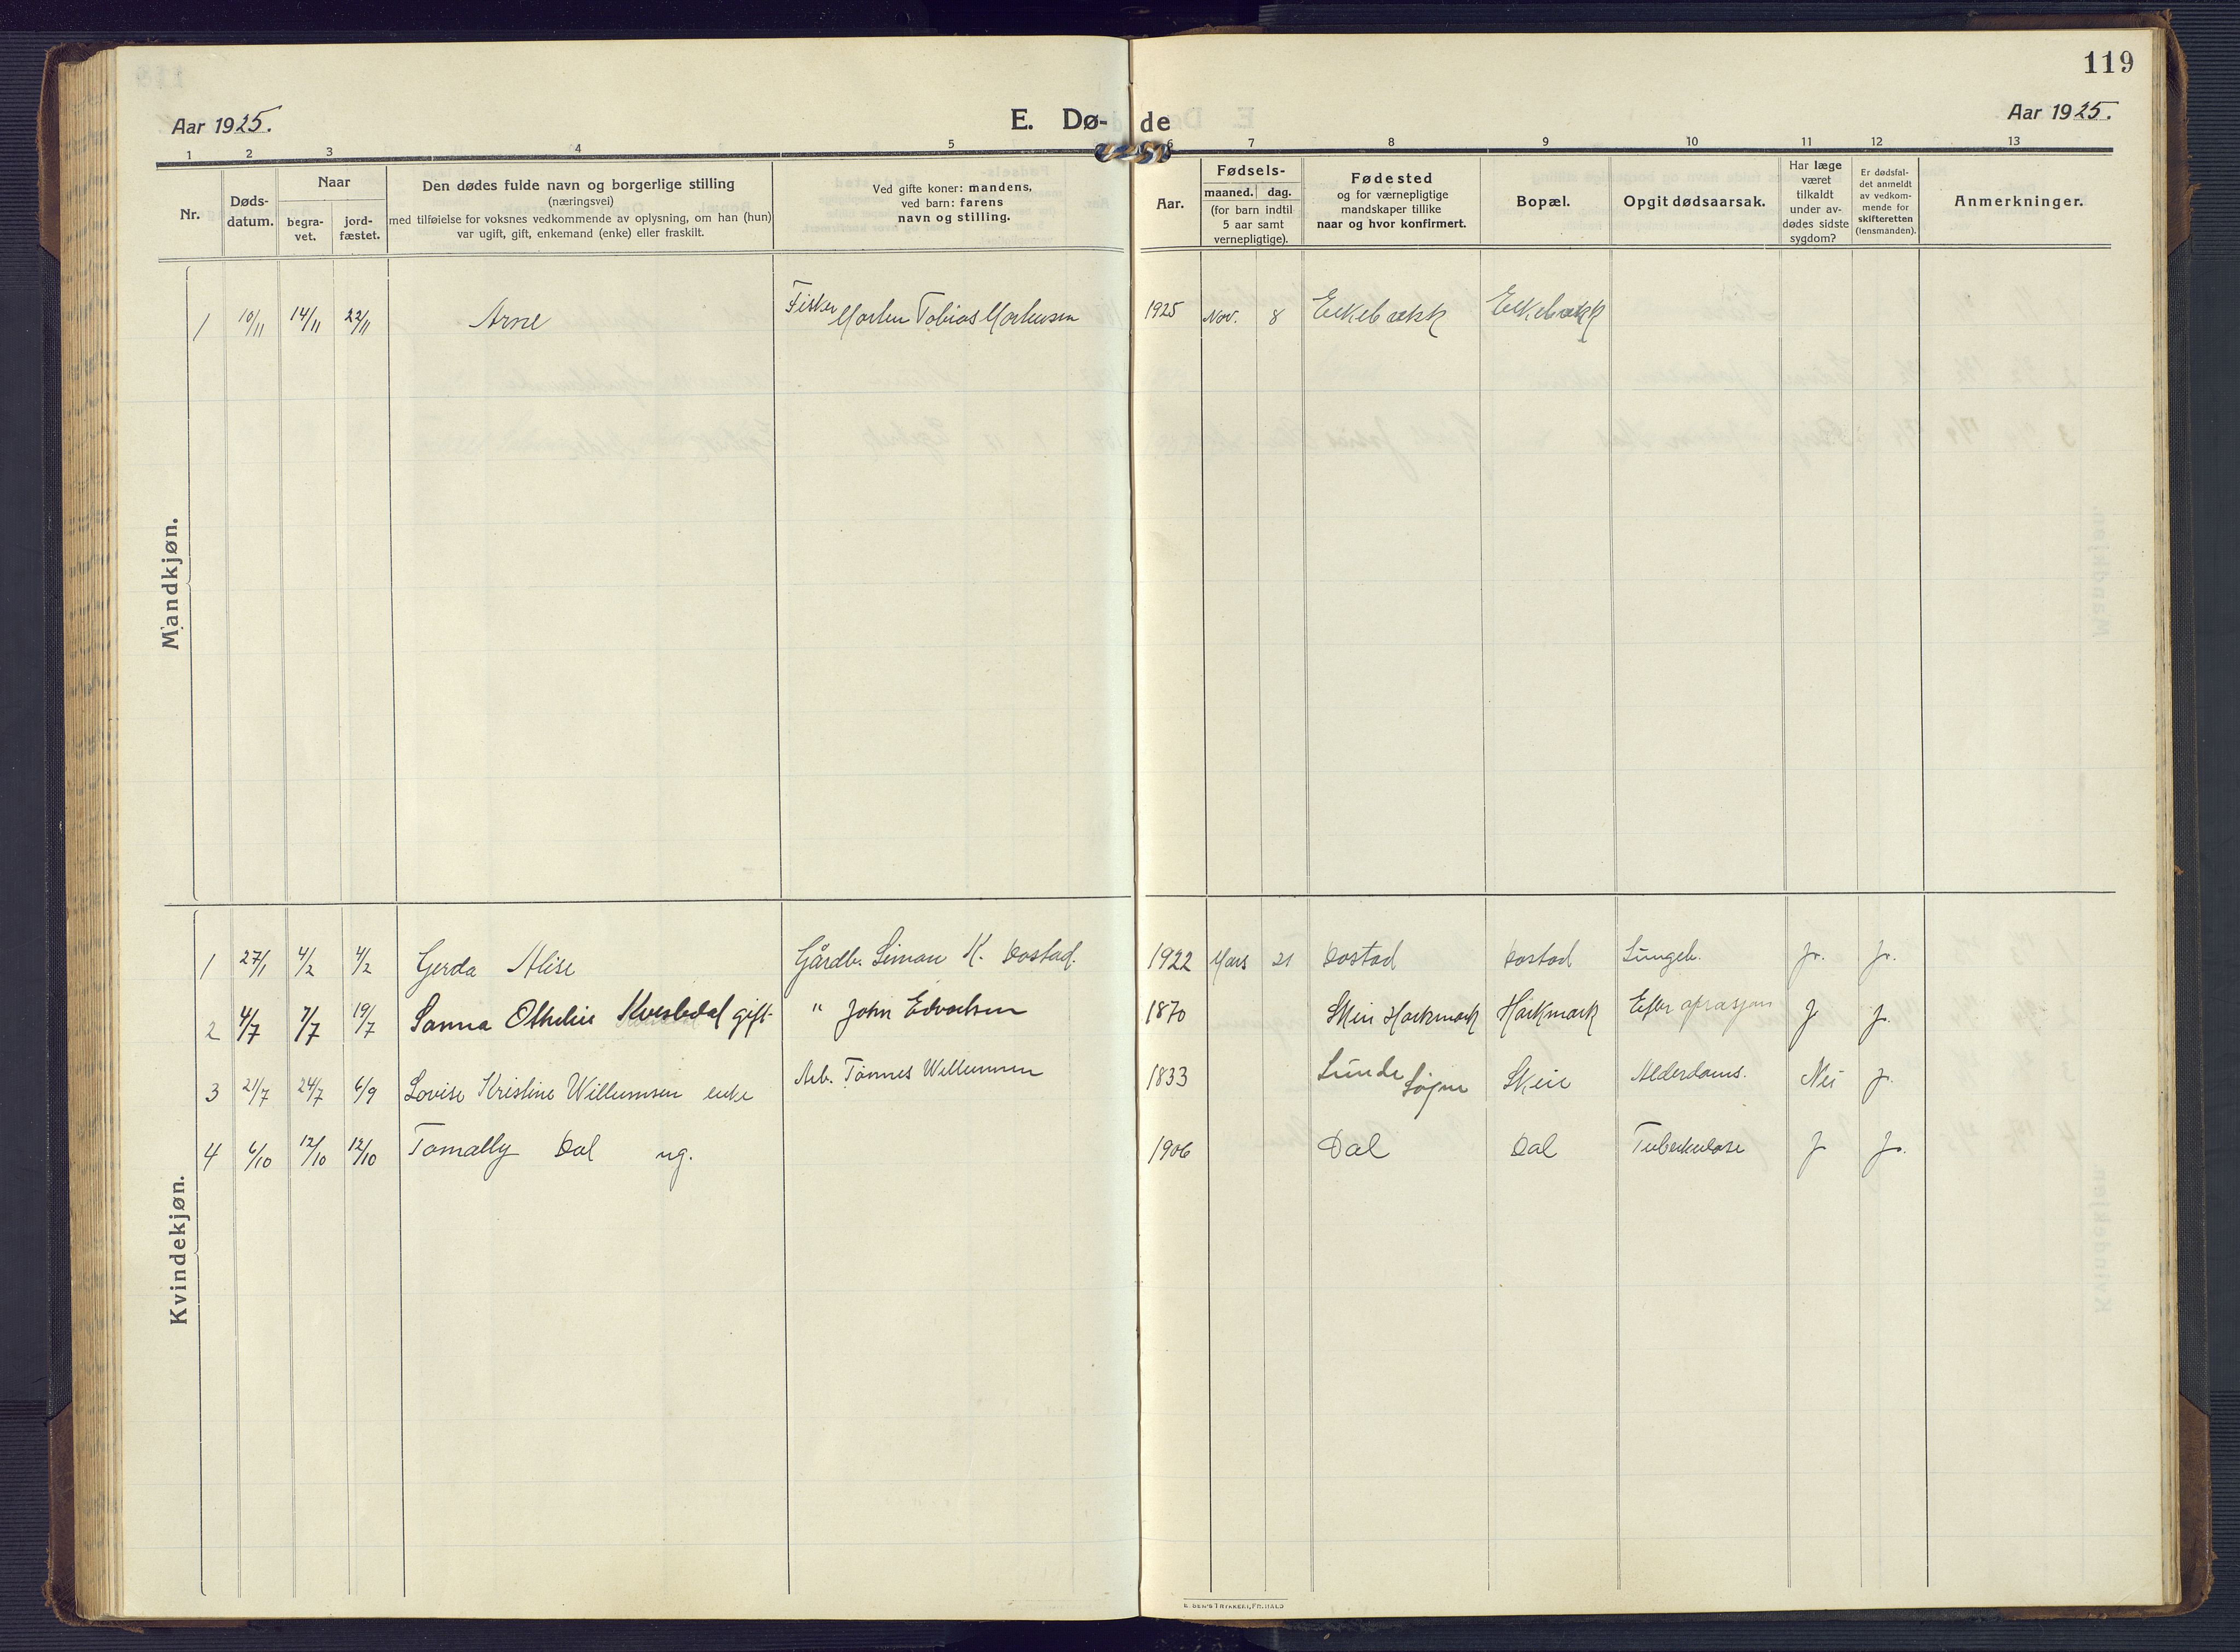 119
Aar 1925.
E. Dø- de
Aar 1925.
1 2 3 4 5 6 7 8 9 10 11 12 13
Nr.
Døds-
datum.
Naar
begra-
vet.
jord-
fæstet.
Den dødes fulde navn og borgerlige stilling
(næringsvei)
med tilføielse for voksnes vedkommende av oplysning, om han (hun)
var ugift, gift, enkemand (enke) eller fraskilt.
Ved gifte koner: mandens,
ved barn: farens
navn og stilling.
Aar.
Fødsels-
maaned. dag.
(for barn indtil
5 aar samt
vernepligtige).
Fødested
og for værnepligtige
mandskaper tillike
naar og hvor konfirmert.
Bopæl.
Opgit dødsaarsak.
Har læge
været
tilkaldt
under av-
dødes sidste
sygdom?
Er dødsfal-
det anmeldt
av vedkom-
mende for
skifteretten
(lensmanden).
Anmerkninger.
Mandkjøn.
1 10/11 14/11 22/11 Arne Fisker Morten Tobias Mortensen 1925 Nov. 8 Eikebækk Eikebækk
Kvindekjøn.
1 27/1 4/2 4/2 Gerda Alise Gårdb. Simon K. Dostad. 1922 Mars 21 Dostad Dostad Lungeb. J. J.
2 4/7 7/7 19/7 Sanna Othelie gift " John Edvardsen 1870 Skin Harkmark Harkmark Efter oprasjon J J.
3 21/7 24/7 6/9 Lovise Kristine Willumsen enke Arb. Tønnes Willumsen 1833 Lunde Søgne Skeie Alderdoms. Nei J.
4 6/10 12/10 12/10 Tomally Dal ug. 1906 Dal Dal Tuberkulose J J.